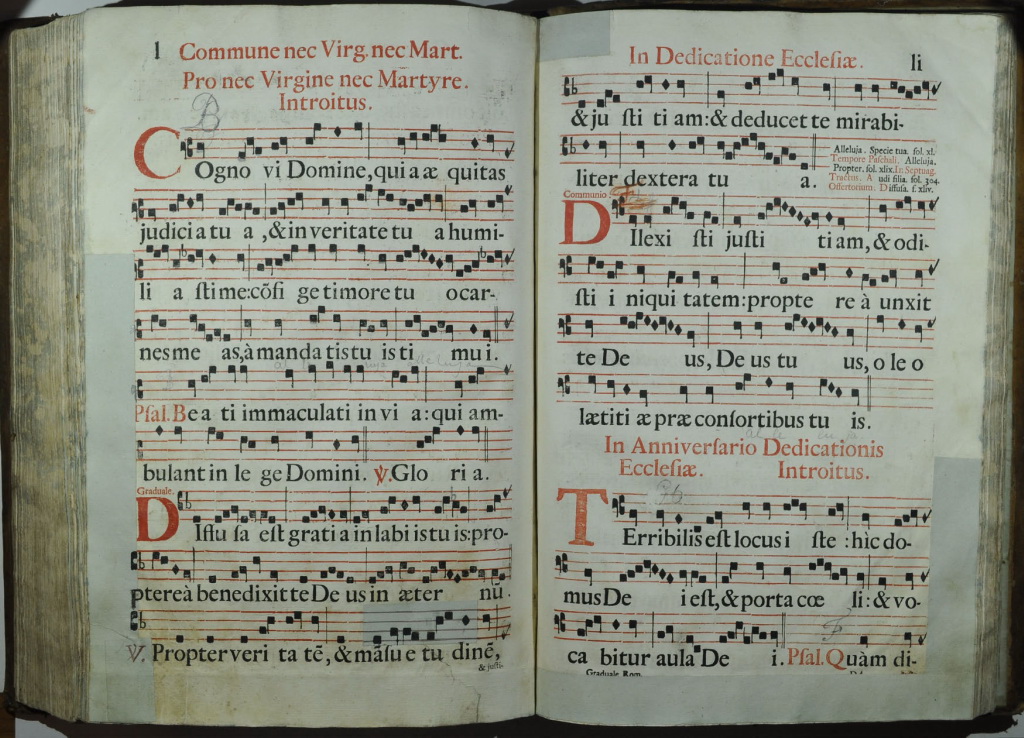 l Commune nec Virg. nec Mart.
Pro nec Virgine nec Martyre.
Introitus.
B
COgno vi Domine, qui a æ quitas
judici a tu a, & in veritate tu a humi-
li a sti me: cõfi ge timore tu o car-
nes me as, à manda tis tu is ti mu i.
Psal. Be a ti immaculati in vi a: qui am-
bulant in le ge Domini. ℣. Glo ri a.
Graduale.
DIffu sa est grati a in labi is tu is: pro-
ptereà benedixit te De us in æter nũ.
℣. Propter veri ta tẽ, & mãsu e tu dinẽ,
& justi-
In Dedicatione Ecclesiæ. li
& ju sti ti am: & deducet te mirabi-
liter dextera tu a.
Alleluja. Specie tua. fol. xl.
Tempore Paschali. Alleluja.
Propter. fol. xlix. In Septuag.
Tractus. A udi filia. fol. 304.
Offertorium. Diffusa. f. xliv.
Communio.
DIlexi sti justi ti am, & odi-
sti i niqui tatem: propte re à unxit
te De us, De us tu us, o le o
lætiti æ præ consortibus tu is.
In Anniversario Dedicationis
Ecclesiæ. Introitus.
TErribilis est locus i ste: hic do-
mus De i est, & porta cœ li: & vo-
ca bitur aula De i. Psal. Quàm di-
Graduale Rom.